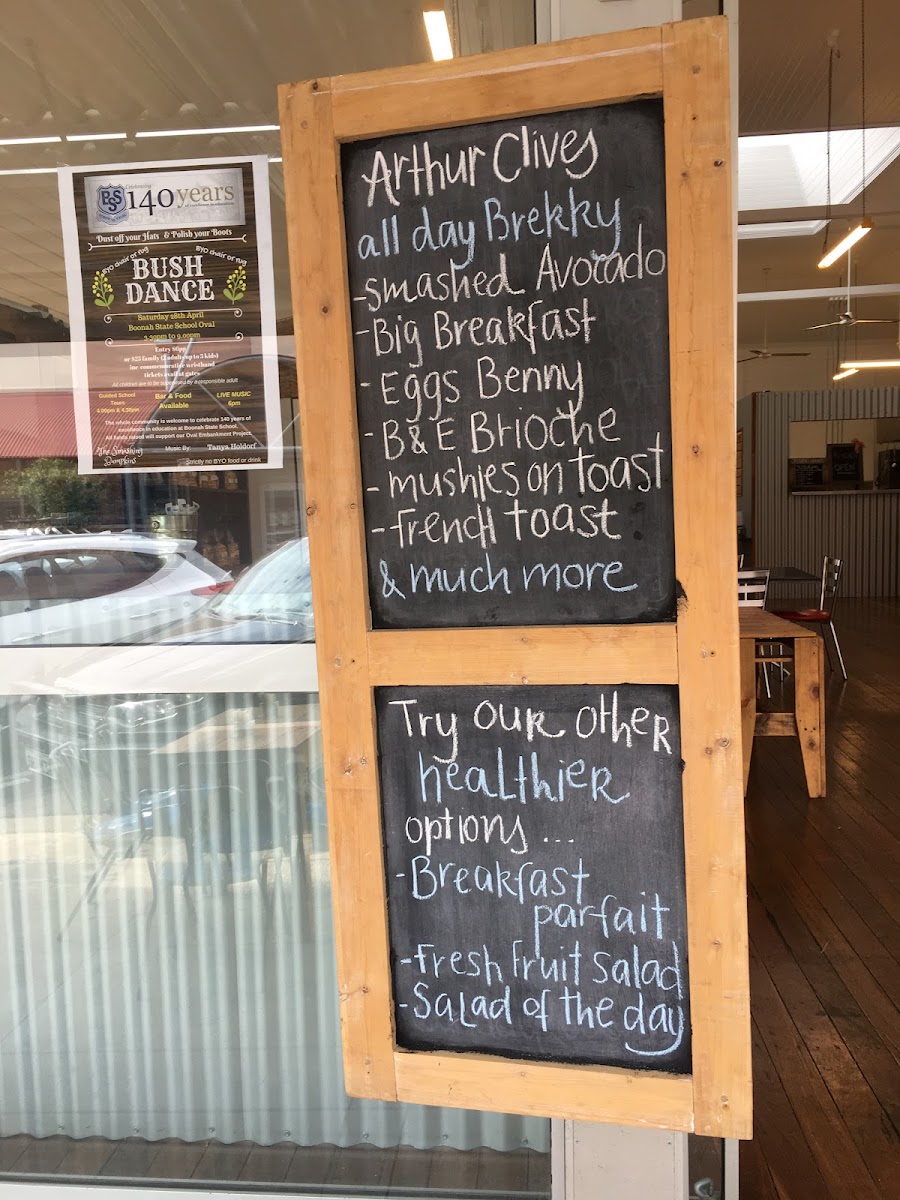 Celebrating
BSS
140 years
Dust off your Hats & Polish your Boots
BYO chair or rug
BYO chair or rug
BUSH
DANCE
Saturday 28th April
Boonah State School Oval
3.30pm to 9.00pm
or $25 family (2 adults up to 3 kids)
inc commemorative wristband
tickets avail at gates
All children are to be supervised by a responsible adult
Guided School
Tours
4.00pm & 4.30pm
Bar & Food
Available
LIVE MUSIC
6pm
The whole community is welcome to celebrate 140 years of
excellence in education at Boonah State School.
All funds raised will support our Oval Embankment Project.
Music By
Tanya Holdorf
Strictly no BYO food or drink
Arthur Clives
all day Brekky
- smashed Avocado
- Big Breakfast
- Eggs Benny
- B & E Brioche
- mushies on toast
- french toast
& much more
Try our other
healthier
options ...
- Breakfast
parfait
- Fresh fruit salad
- Salad of the day